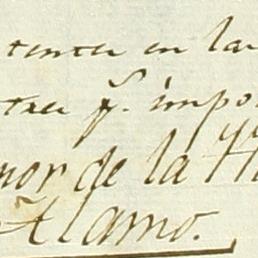 tenta en la
tra pª. impo
nor de la H
Alamo.